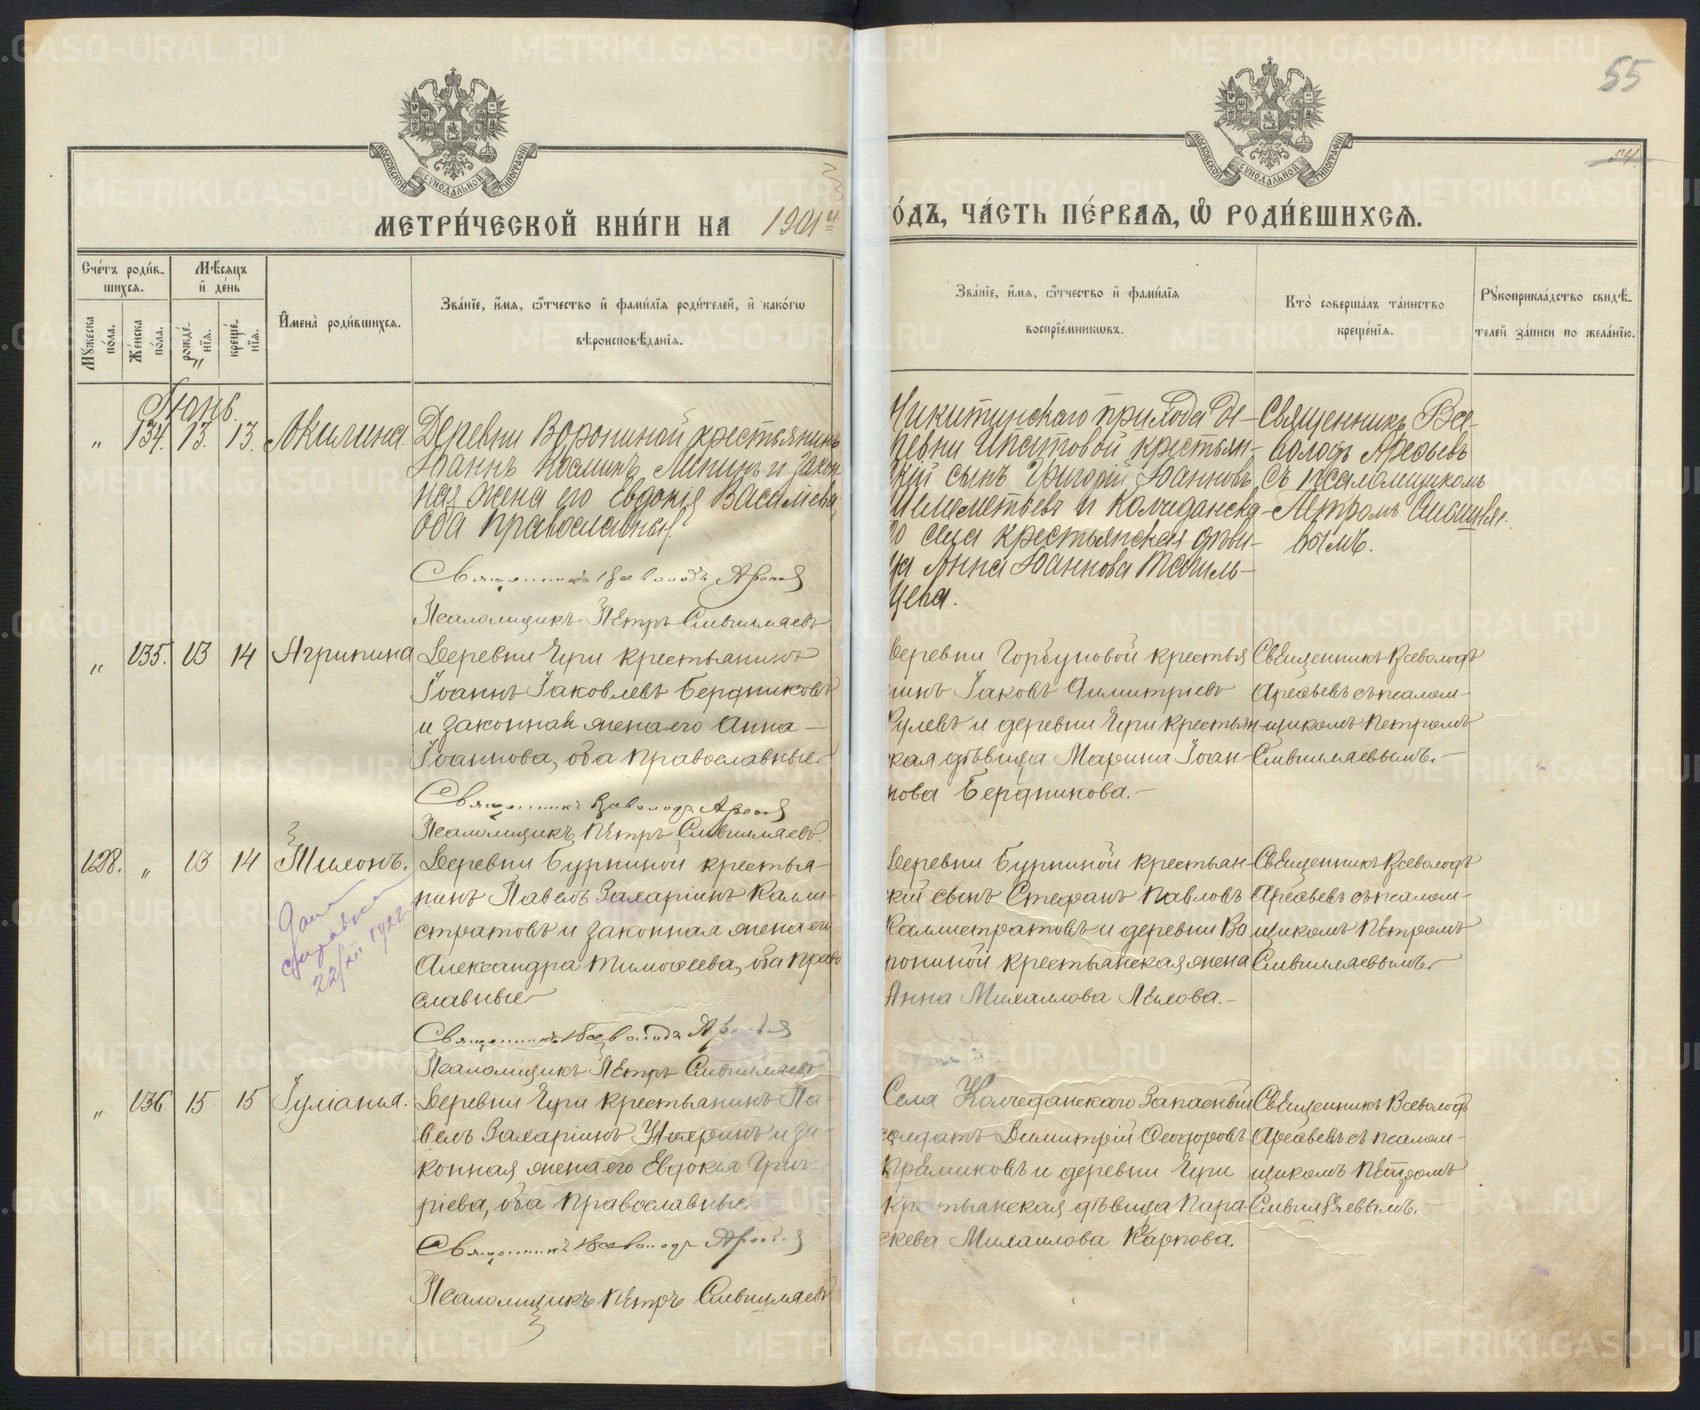 55
54.
МОСКОВСКОЙ СѴНОДАЛЬНОЙ ТИПОГРАФІИ
МОСКОВСКОЙ СѴНОДАЛЬНОЙ ТИПОГРАФІИ
МЕТРИ́ЧЕСКОЙ КНИ́ГИ НА 1901й
О́ДЪ, ЧА́СТЬ ПЕ́РВАѦ, Ѡ҆ РОДИ́ВШИХСѦ.
Сче́тъ роди́в-
шихся.
Мѣ́сяцъ
и҆ де́нь
Мꙋ́жеска по́ла.
Же́нска по́ла.
рожде́-нїя.
креще́-нїя.
И҆мена̀ роди́вшихся.
Зва́нїе, и҆́мя, ѻ҆́тчество и҆ фами́лїя роди́телей, и҆ како́гѡ
вѣроисповѣ́данїя.
Зва́нїе, и҆́мя, ѻ҆́тчество и҆ фами́лїя
воспрїе́мникѡвъ.
Кто̀ соверша́лъ та́инство
креще́нїя.
Рꙋкоприкла́дство свидѣ́-
телей за́писи по жела́нїю.
Іюнь.
" 134. 13. 13. Акилина.
Деревни Ворониной крестьянинъ
Іоаннъ Косминъ Лепинъ и закон
ная жена его Евдокія Васильева
оба православные.
Священникъ Всеволодъ Арефьевъ
Псаломщикъ Петръ
Никитинскаго прихода де-
ревни Ипатовой крестьян-
скій сынъ Григорій Іоанновъ
Шеметьевъ и Колчеданска-
го села крестьянская дѣви-
ца Анна Іоаннова Тягиль-
цева.
Священникъ Все-
володъ Арефьевъ
съ псаломщикомъ
Петромъ
вымъ.
" 135. 13 14 Агрипина
Деревни Чери крестьянинъ
Іоаннъ Іаковлевъ Бердниковъ
и законная жена его Анна
Іоаннова, оба православные
Священникъ Всеволодъ Арефьевъ
Псаломщикъ Петръ
Деревни Горбуновой крестья
нинъ Іаковъ Димитріевъ
Гулевъ и деревни Чери крестьян
ская дѣвица Марина Іоан
нова Бердникова.—
Священникъ Всеволодъ
Арефьевъ съ псалом-
щикомъ Петромъ
128. " 13 14 Тихонъ.
Дана
справка
22/XII 1922
Деревни Бурниной крестья-
нинъ Павелъ Захаріинъ Кали-
стратовъ и законная жена его
Александра Тимоѳеева, оба право
славные
Священникъ Всеволодъ Арефьевъ
Псаломщикъ Петръ
Деревни Бурниной крестьян-
скій сынъ Стефанъ Павловъ
Каллистратовъ и деревни Во
рониной крестьянская жена
Анна Михаилова Лехова.—
Священникъ Всеволодъ
Арефьевъ съ псалом-
щикомъ Петромъ
" 136. 15 15 Іуліанія.
Деревни Чери крестьянинъ Па-
велъ Захаріинъ и за-
конная жена его Евдокія Григо-
ріева, оба православные
Священникъ Всеволодъ Арефьевъ
Псаломщикъ Петръ
Села Колчеданскаго запасный
солдатъ Димитрій Ѳеодоровъ
Прямиковъ и деревни Чери
крестьянская дѣвица Пара
скева Михаилова Карпова.
Священникъ Всеволодъ
Арефьевъ съ псалом-
щикомъ Петромъ
METRIKI.GASO-URAL.RU